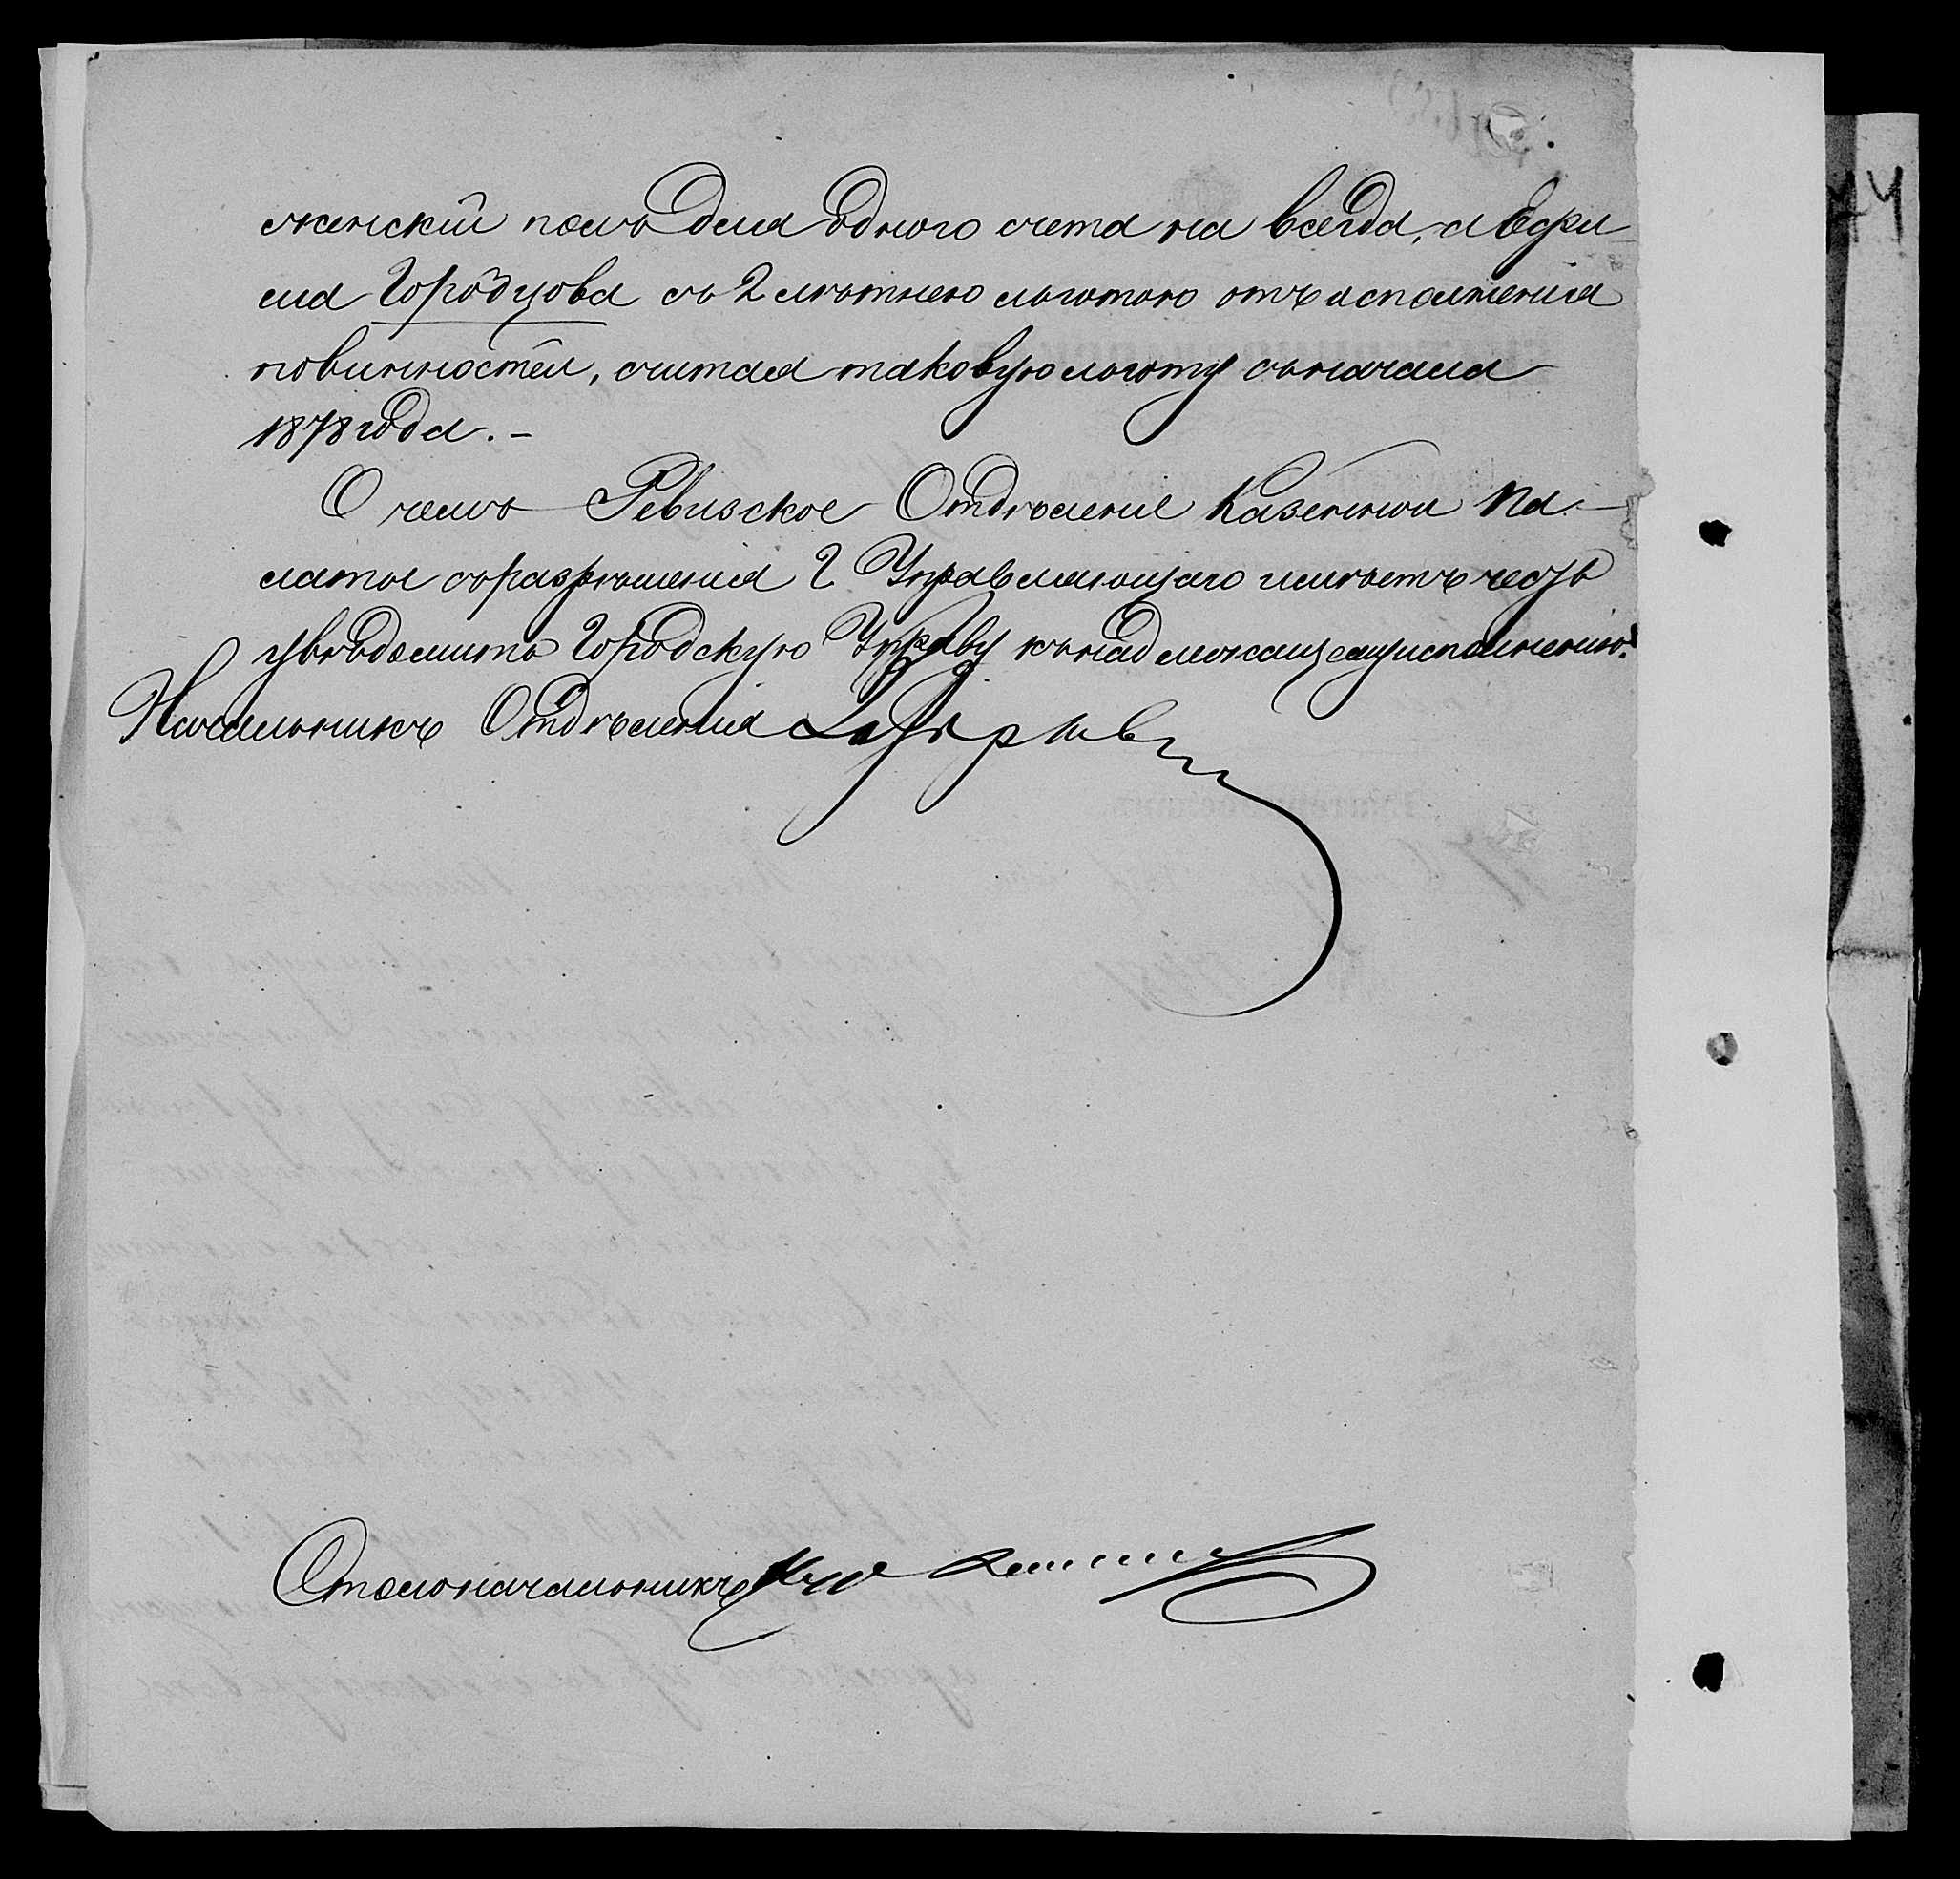 женскій полъ для одного счета на всегда, а Ефи-
ма Городцова съ 2 лѣтнею льготою отъ исполненія
повинностей, считая таковую льготу съ начала
1878 года. -
О чемъ Ревизское Отдѣленіе Казенной Па-
латы съ разрѣшенія Г. Управляющаго имѣетъ честь
увѣдомить Городскую Управу къ надлежащему исполненію.
Начальникъ Отдѣленія
Столоначальникъ